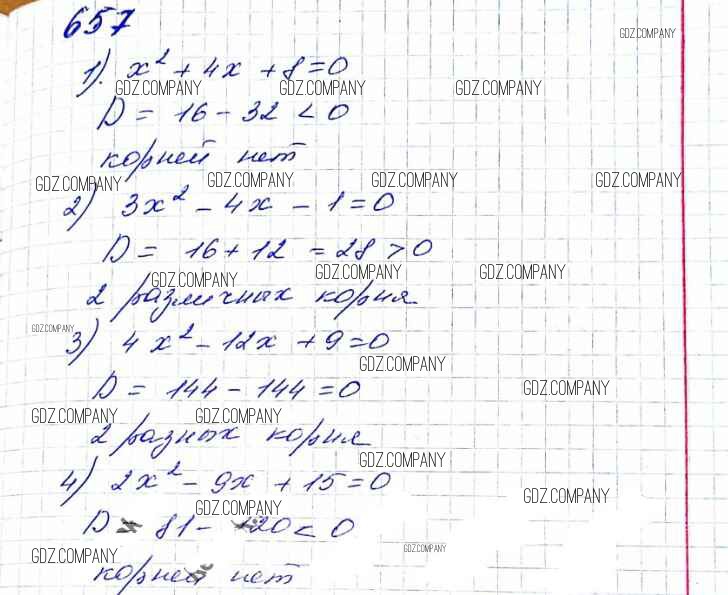 657
GDZ.COMPANY
1). x² + 4x + 8 = 0
GDZ.COMPANY GDZ.COMPANY GDZ.COMPANY
D = 16 - 32 < 0
корней нет
GDZ.COMPANY GDZ.COMPANY GDZ.COMPANY GDZ.COMPANY
2) 3x² - 4x - 1 = 0
D = 16 + 12 = 28 > 0
GDZ.COMPANY GDZ.COMPANY GDZ.COMPANY
2 различных корня
GDZ.COMPANY
3) 4x² - 12x + 9 = 0
GDZ.COMPANY
D = 144 - 144 = 0
GDZ.COMPANY
GDZ.COMPANY GDZ.COMPANY
2 разных корня
GDZ.COMPANY
4) 2x² - 9x + 15 = 0
GDZ.COMPANY
GDZ.COMPANY
D = 81 - 120 < 0
GDZ.COMPANY GDZ.COMPANY
корней нет